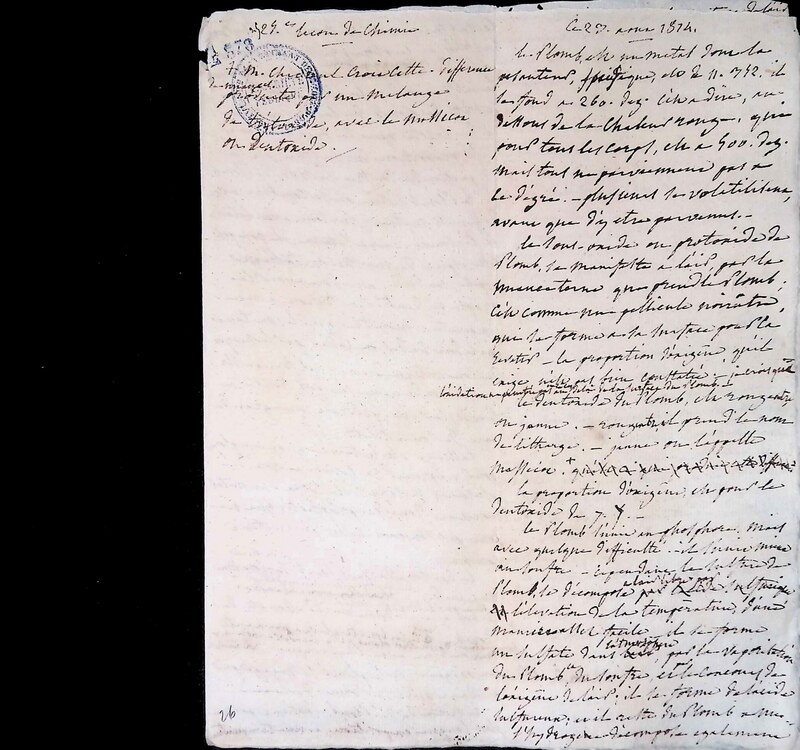 25.e leçon de Chimie
+ M. Chevreul Croit Cette différence
produite par un mélange
de avec le massicot
ou deutoxide.
26
Ce 27 aoust 1814.
le Plomb, est un métal dont la
pesanteur, spécifique, est de 11.352. il
se fond a 260. deg. C'est a dire, au
dessous de la Chaleur rouge, que
pour tous les corps, est a 500. deg.
mais tous ne parviennent pas a
ce dégré. - plusieurs se volatilisent,
avant que d'y etre parvenus. -
le sous-oxide ou protoxide de
Plomb, se manifeste a l'air, par la
nuance terne que prend le Plomb;
C'est comme une pellicule noirâtre,
qui se forme a sa surface pour la
- la proportion d'oxigène, qu'il
exige, n'est pas bien constatée. - je crois que
l'oxidation de la surface du Plomb. -
le deutoxide du Plomb, est rougeâtre
ou jaune. - rougeâtre il prend le nom
de litharge. - jaune on l'appelle
massicot. +
la proportion d'oxigène, est pour le
deutoxide de 7.
le Plomb s'unit au phosphore, mais
avec quelque difficulté - il s'unit mieux
au soufre - Cependant, le sulfure de
Plomb, se décompose
a l'air libre par
l'élévation de la température, d'une
manière assez facile. il se forme
un sulfate dans
l'atmosphère
, par la vaporisation
du Plomb et du soufre, et le concours de
l'oxigène de l'air; il se forme de l'acide
sulfureux; et il reste du Plomb a nu.
l'hydrogène décompose également